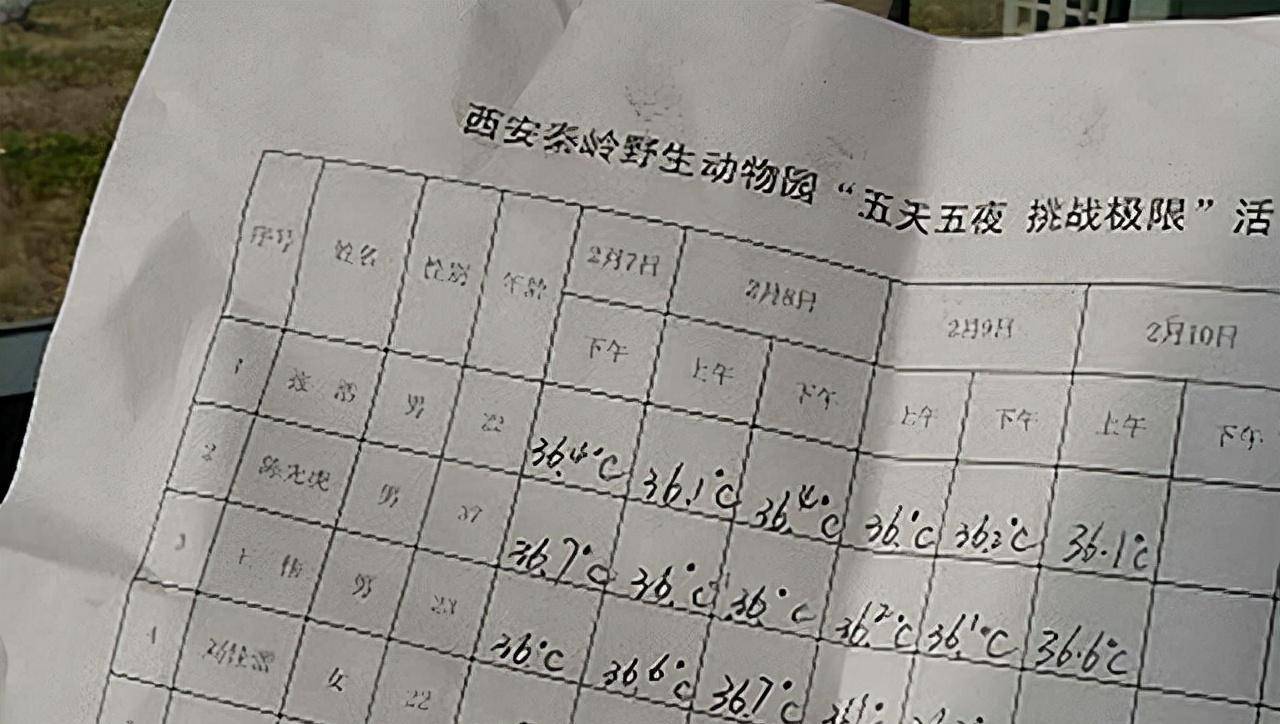 西安秦岭野生动物园“五天五夜 挑战极限”活
序号 姓名 性别 年龄 2月7日 2月8日 2月9日 2月10日
下午 上午 下午 上午 下午 上午 下午
1 男 22 36.4℃ 36.1℃ 36.4℃ 36.℃ 36.2℃ 36.1℃
2 男 37 36.7℃ 36.℃ 36.℃ 36.2℃ 36.1℃ 36.6℃
3 男 23 36℃ 36.6℃ 36.7℃
4 女 22